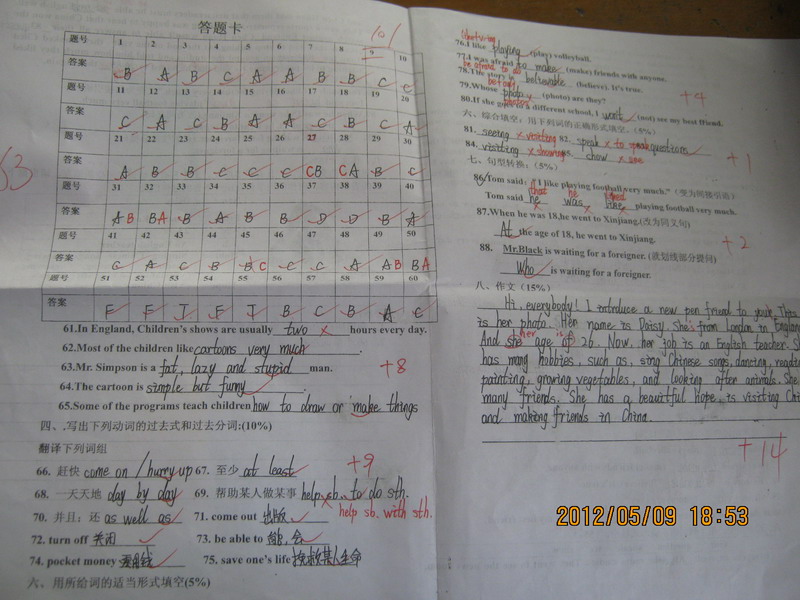 答题卡
101
题号 1 2 3 4 5 6 7 8 9 10
答案 B A B C A A B B C C
题号 11 12 13 14 15 16 17 18 19 20
答案 C A C B A A C B C A
题号 21 22 23 24 25 26 27 28 29 30
答案 A B B C C C CB CA B C
题号 31 32 33 34 35 36 37 38 39 40
答案 AB BA B A B B D D B A
题号 41 42 43 44 45 46 47 48 49 50
答案 C A C B BC C C A AB BA
题号 51 52 53 54 55 56 57 58 59 60
答案 F F J F J B C B A C
61.In England, Children's shows are usually two × hours every day.
62.Most of the children like cartoons very much.
63.Mr. Simpson is a fat, lazy and stupid man.
+8
64.The cartoon is simple but funny
65.Some of the programs teach children how to draw or make things
四、.写出下列动词的过去式和过去分词:(10%)
翻译下列词组
+9
66. 赶快 come on / hurry up 67. 至少 at least
68. 一天天地 day by day 69. 帮助某人做某事 help sb. to do sth.
help sb. with sth.
70. 并且；还 as well as 71. come out 出版
72. turn off 关闭 73. be able to 能，会
74. pocket money 零用钱 75. save one's life 挽救某人生命
六、用所给词的适当形式填空(5%)
76.I like playing (play) volleyball.
77.I was afraid to make (make) friends with anyone.
be afraid to do
78.The story is believable (believe). It's true.
79.Whose photo (photo) are they?
photos
+4
80.If she goes to a different school, I won't (not) see my best friend.
六、综合填空：用下列词的正确形式填空。(5%)
81. seeing × visiting 82. speak × to speak question
84. visiting × showing show × see
+1
七、句型转换：(5%)
86.Tom said: "I like playing football very much." (变为间接引语)
that he liked
Tom said he was like playing football very much.
87.When he was 18,he went to Xinjiang.(改为同义句)
At the age of 18, he went to Xinjiang.
+2
88. Mr.Black is waiting for a foreigner. (就划线部分提问)
Who is waiting for a foreigner.
八、作文 (15%)
Hi, everybody! I introduce a new pen friend to you. This
is her photo. Her name is Daisy. She's from London in England.
her is
And she age of 26. Now, her job is an English teacher. S
has many hobbies, such as, sing Chinese songs, dancing, readi
painting, growing vegetables, and looking after animals. She
many friends. She has a beautiful hope, is visiting Chi
and making friends in China.
+14
2012/05/09 18:53